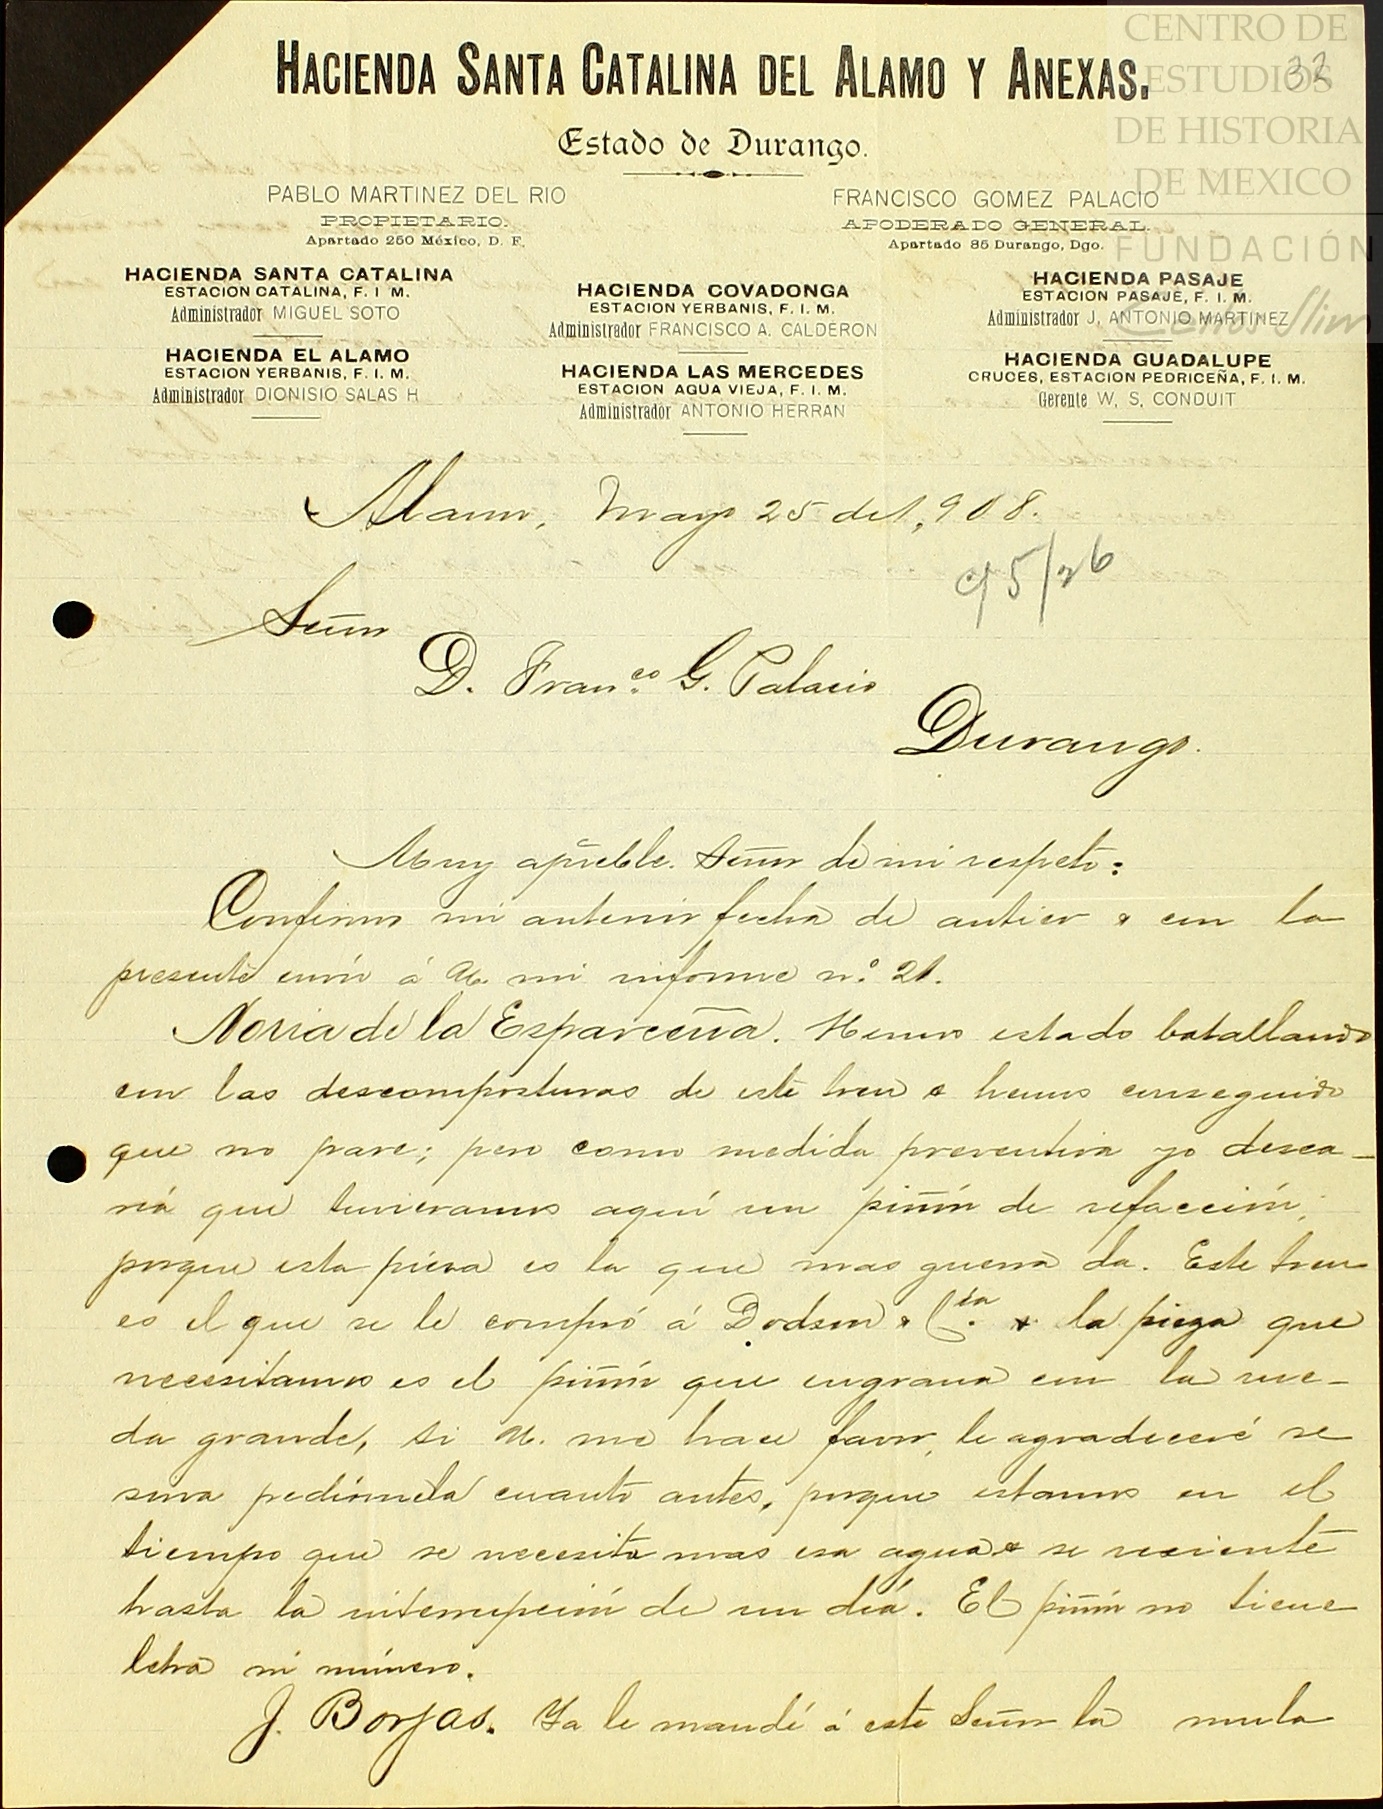 CENTRO DE
ESTUDIOS
DE HISTORIA
DE MEXICO
FUNDACIÓN
Carlos Slim
32
HACIENDA SANTA CATALINA DEL ALAMO Y ANEXAS.
Estado de Durango.
PABLO MARTINEZ DEL RIO
PROPIETARIO.
Apartado 250 México, D. F.
FRANCISCO GOMEZ PALACIO
APODERADO GENERAL.
Apartado 85 Durango, Dgo.
HACIENDA SANTA CATALINA
ESTACION CATALINA, F. I. M.
Administrador MIGUEL SOTO
HACIENDA EL ALAMO
ESTACION YERBANIS, F. I. M.
Administrador DIONISIO SALAS H
HACIENDA COVADONGA
ESTACION YERBANIS, F. I. M.
Administrador FRANCISCO A. CALDERON
HACIENDA LAS MERCEDES
ESTACION AGUA VIEJA, F. I. M.
Administrador ANTONIO HERRAN
HACIENDA PASAJE
ESTACION PASAJE, F. I. M.
Administrador J. ANTONIO MARTINEZ
HACIENDA GUADALUPE
CRUCES, ESTACION PEDRICEÑA, F. I. M.
Gerente W. S. CONDUIT
Alamo, Mayo 25 de 1,908.
c/ 5/26
Señor
D. Fran.co G. Palacio
Durango.
Muy apreble. Señor de mi respeto:
Confirmo mi anterior fecha de antier & con la
presente envío á U. mi informe n.° 21.
Noria de la Esparceña. Hemos estado batallando
con las descomposturas de este tren & hemos conseguido
que no pare; pero como medida preventiva yo desea-
ría que tuvieramos aquí un piñón de refacción,
porque esta pieza es la que mas guerra da. Este tren
es el que se le compró á Dodson & C.ía & la pieza que
necesitamos es el piñón que engrana con la rue-
da grande, si U. me hace favor, le agradeceré se
sirva pedírmela cuanto antes, porque estamos en el
tiempo que se necesita mas esa agua & se reciente
hasta la interrupción de un día. El piñón no tiene
letra ni número.
J. Borjas. Ya le mandé á este Señor la mula